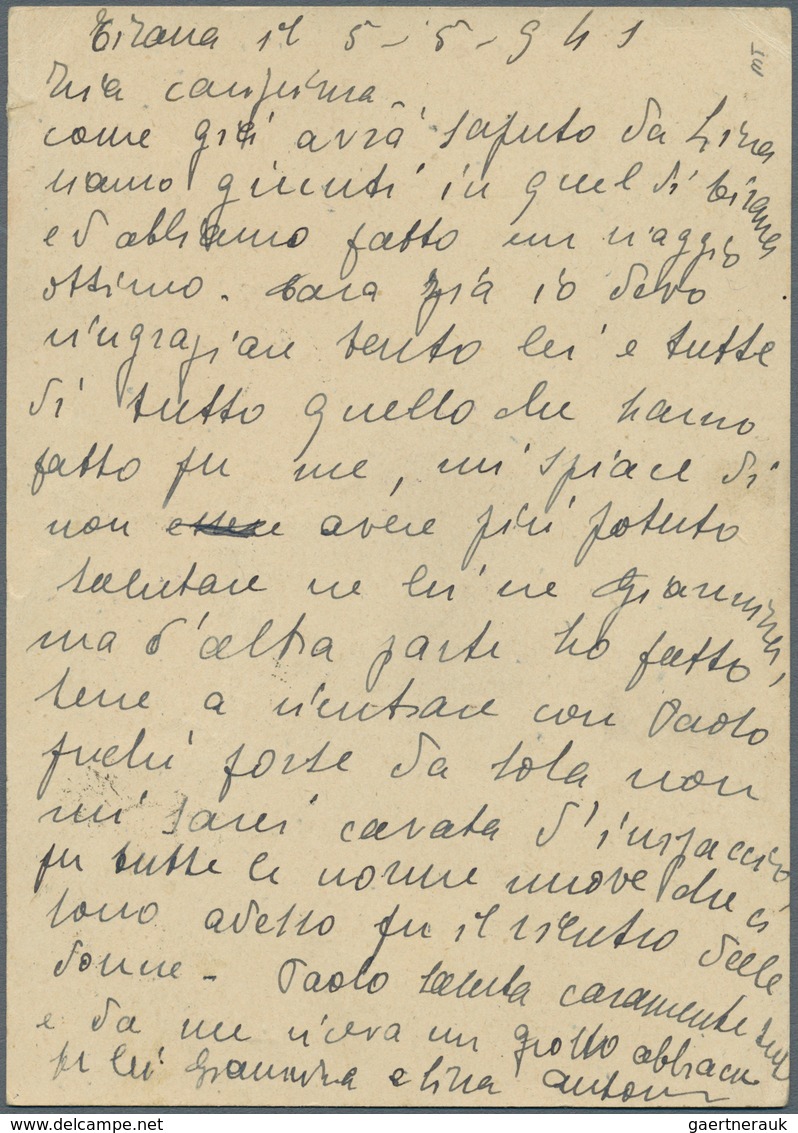 Tirana il 5-5-941
Zia carissima
come già avrà saputo da Lina
siamo giunti in quel di Tirana
ed abbiamo fatto un viaggio
ottimo. Cara zia io devo
ringraziare tanto lei e tutte
di tutto quello che hanno
fatto per me, mi spiace di
non avere più potuto
salutare ne lei ne Giannina,
ma d'altra parte ho fatto
bene a rientrare con Paolo
perché forse da sola non
mi sarei cavata d'impaccio
per tutte le norme nuove che ci
sono adesso per il rientro delle
donne - Paolo saluta caramente
e da me riceva un grosso abbraccio
per lei Giannina e Lina
gaertnerauk